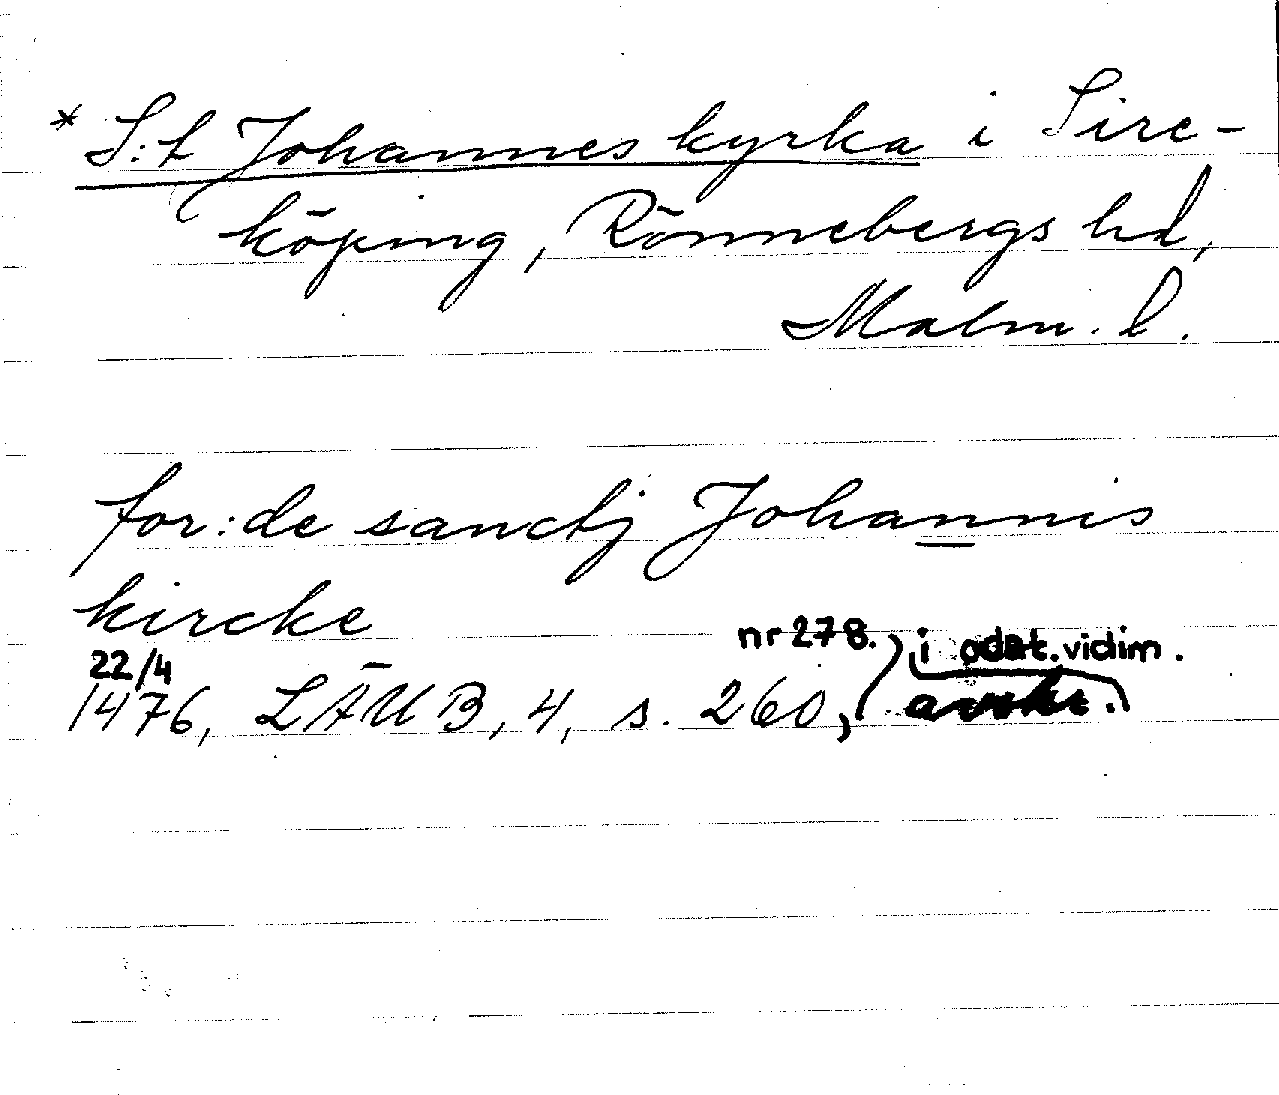 * S:t Johannes kyrka i Sire-
köping, Rönnebergs hd,
Malm. l.
for:de sanctj Johannis
kircke
nr 278. i odat. vidim.
22/4
1476, LÄUB, 4, s. 260, avskr.